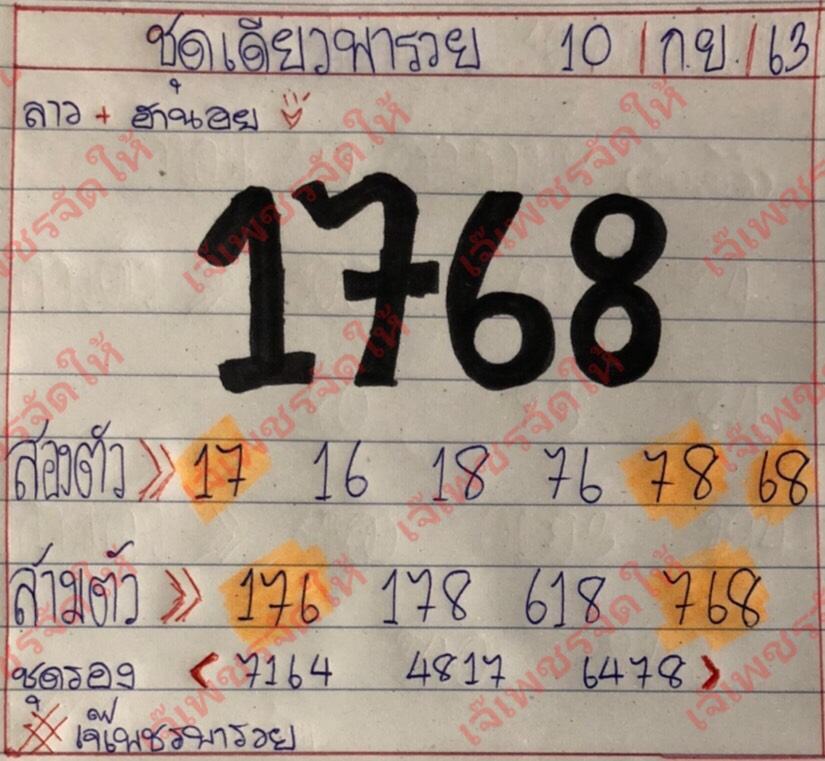 ชุดเดียวพารวย 10 / ก.ย. / 63
ลาว + ฮานอย
1768
สองตัว >> 17 16 18 76 78 68
สามตัว >> 176 178 618 768
ชุดรอง < 7164 4817 6478 >
เจ๊เพชรพารวย
เจ๊เพชรจัดให้